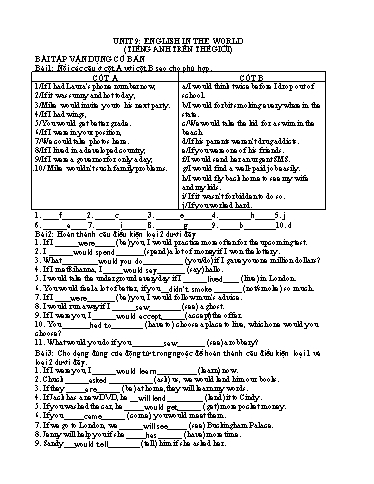 UNIT 9: ENGLISH IN THE WORLD
(TIẾNG ANH TRÊN THẾ GIỚI)
BÀI TẬP VẬN DỤNG CƠ BẢN
Bài 1: Nối các câu ở cột A với cột B sao cho phù hợp.
CỘT A
1/If I had Laura's phone number now,
2/If it was sunny and hot today,
3/Mike would invite you to his next party.
4/If I had wings,
5/You would get better grade.
6/If I were in your position,
7/We could take photos here.
8/If I lived in a developed country,
9/If I were a governor for only a day,
10/ Mike wouldn't such family problems.
CỘT B
a/I would think twice before I drop out of
school.
b/I would forbit smoking everywhere in the
state.
c/We would take the kid for a swim in the
beach.
d/If his parents weren't drug addicts.
e/If you were one of his friends.
f/I would send her an urgent SMS.
g/I would find a well-paid job easily.
h/I would fly back home to see my wife
and my kids.
i/ If it wasn't forbidden to do so.
j/ If you worked hard.
1. ____f____2. ____c____3. ____e____4. ____h____5. j
6. ____e____7. ____i____8. ____g____9. ____b____10. d
Bài 2: Hoàn thành câu điều kiện loại 2 dưới đây
1. If I ____were____ (be) you, I would practise more often for the upcoming test.
2. I ____would spend____ (spend) a lot of money if I won the lottery.
3. What ____would you do____ (you/do) if I gave you one million dollars?
4. If I met Rihanna, I ____would say____ (say) hallo.
5. I would take the underground everyday if I ____lived____ (live) in London.
6. You would feel a lot better, if you ____didn't smoke____ (not/smoke) so much.
7. If I ____were____ (be) you, I would follow mun's advice.
8. I would run away if I ____saw____ (see) a ghost.
9. If I were you, I ____would accept____ (accept) the offer.
10. You ____had to____ (have to) choose a place to live, which one would you
choose?
11. What would you do if you ____saw____ (see) a robbery?
Bài 3: Cho dạng đúng của động từ trong ngoặc để hoàn thành câu điều kiện loại 1 và
loại 2 dưới đây.
1. If I were you, I ____would learn____ (learn) now.
2. Chuck ____asked____ (ask) us, we would lend him our books.
3. If they ____are____ (be) at home, they will learn my words.
4. If Jack has a new DVD, he __will lend____ (lend) it to Cindy.
5. If you washed the car, he ____would get____ (get) more pocket money.
6. If you ____came____ (come) you would meet them.
7. If we go to London, we ____will see____ (see) Buckingham Palace.
8. Jenny will help you if she ____has____ (have) more time.
9. Sandy __would tell____ (tell) him if she asked her.